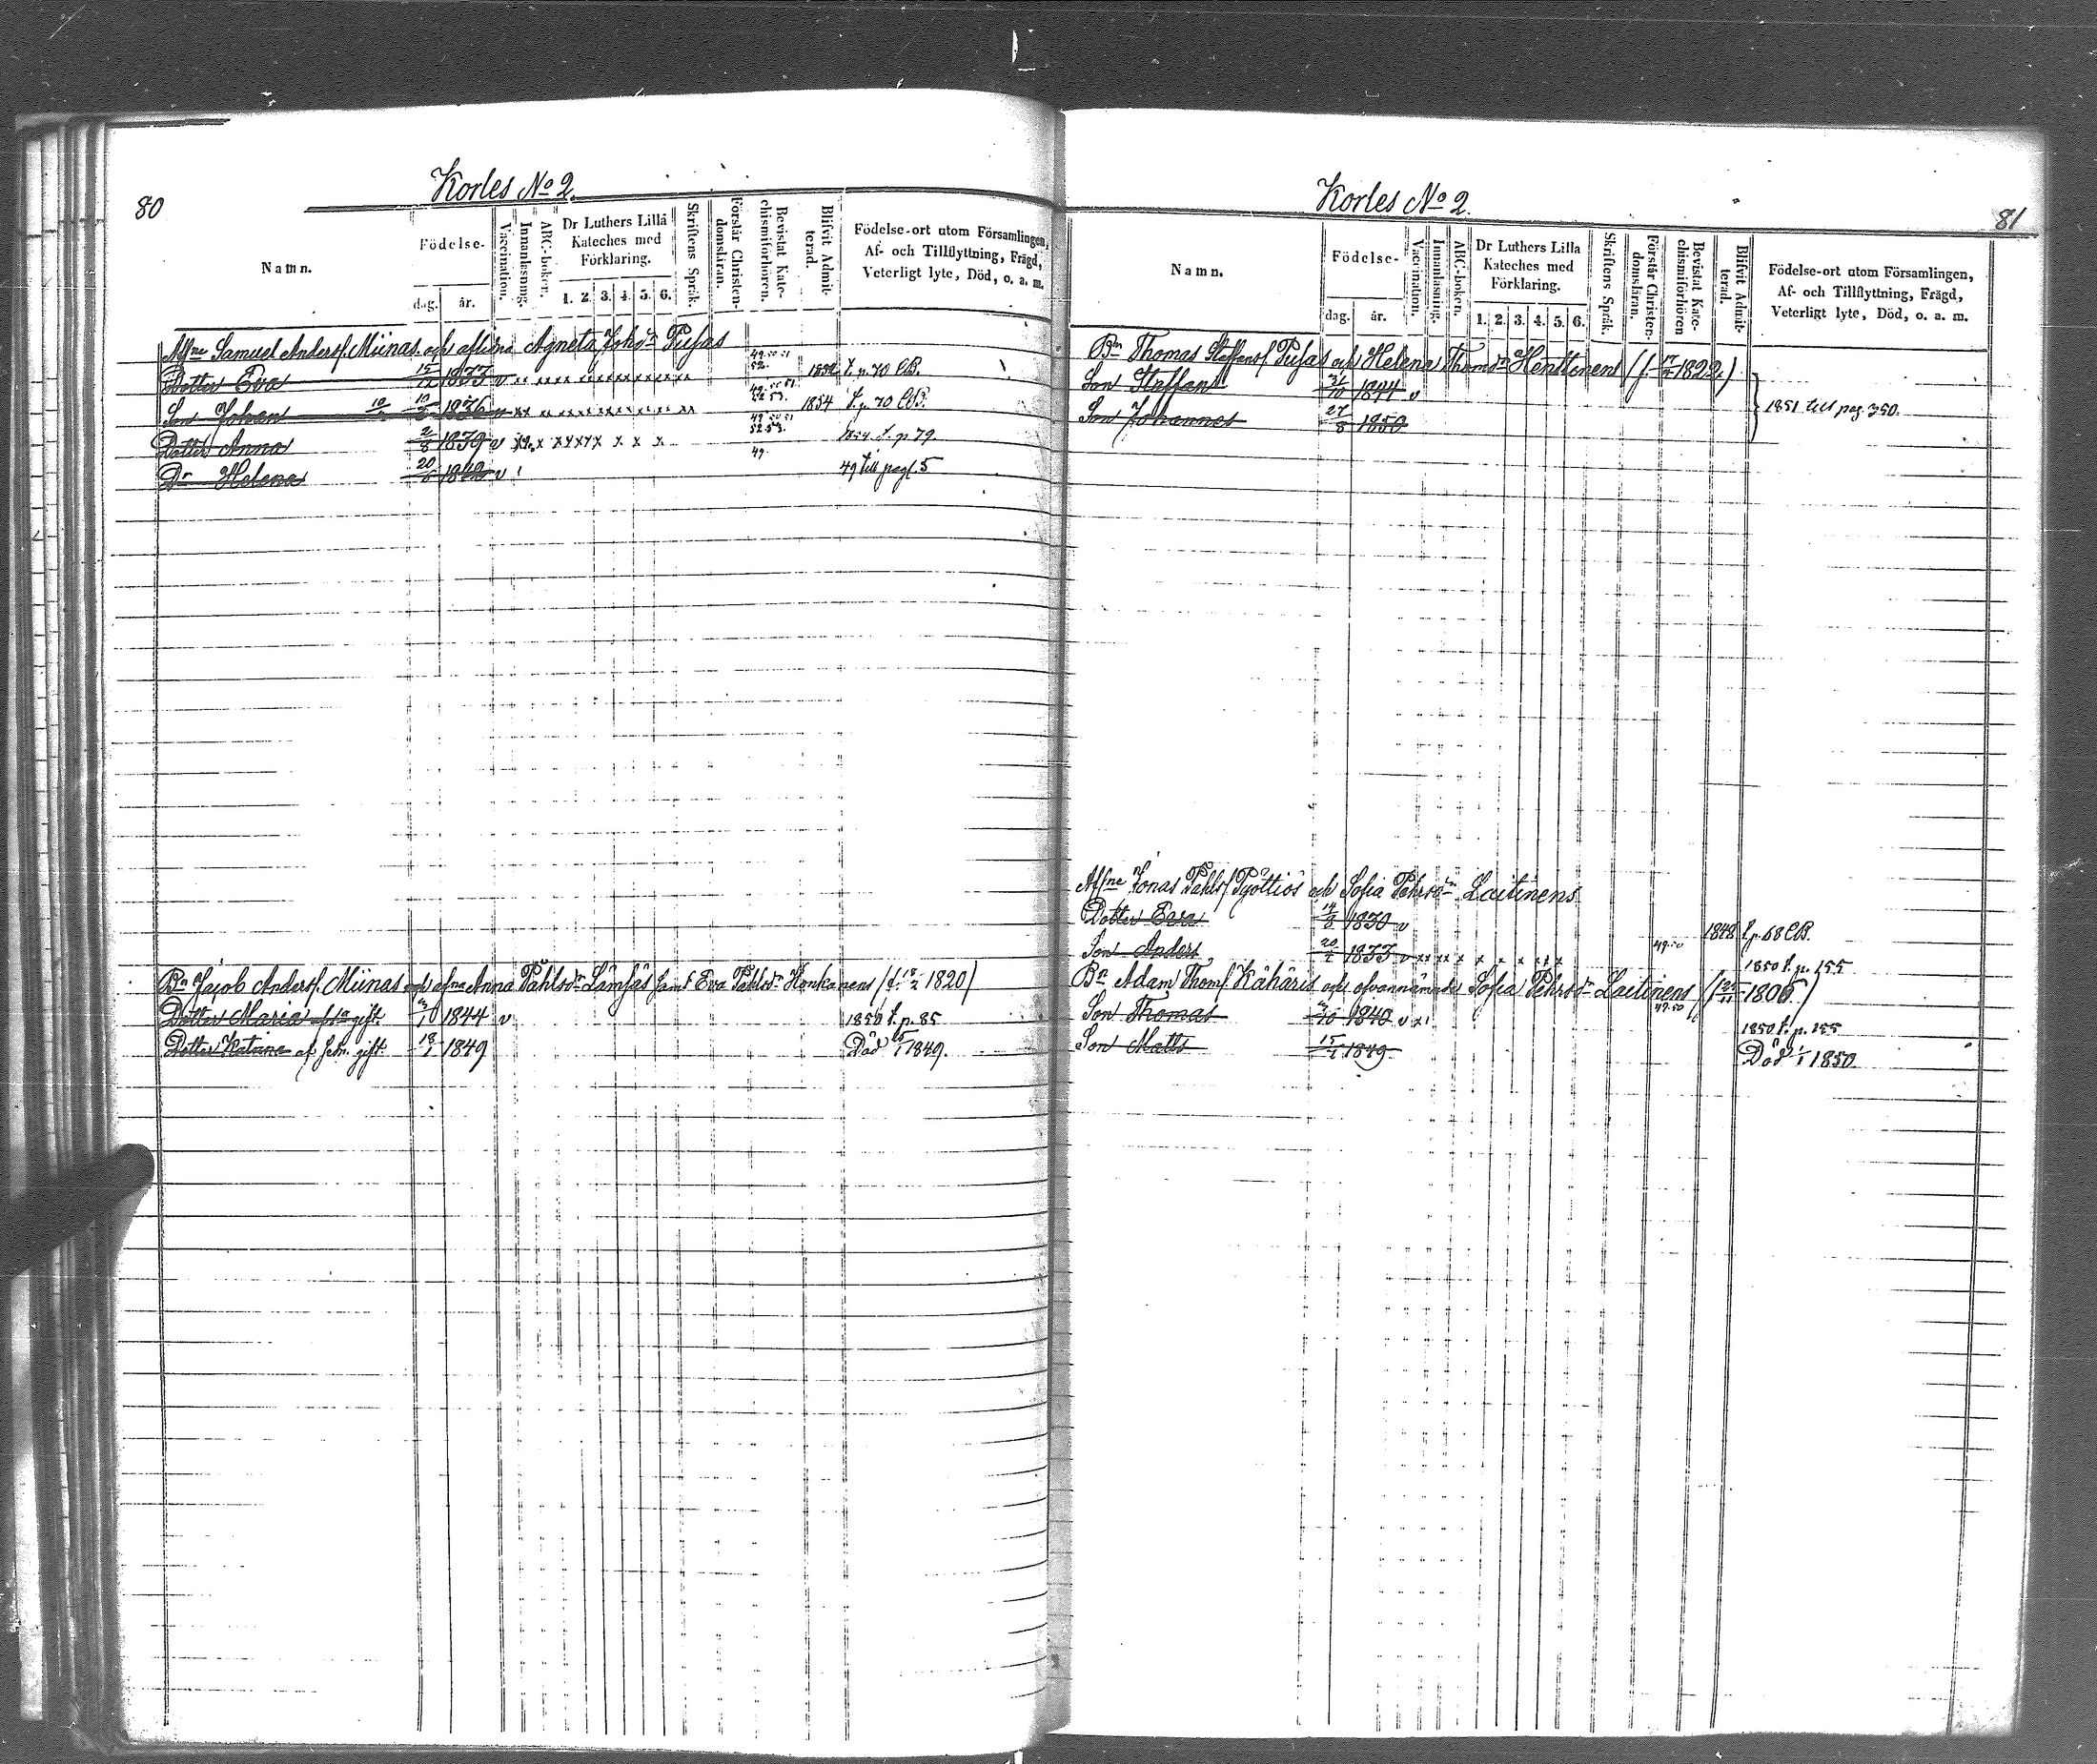 80
Korles No 2.
Namn.
Födelse-
dag.
år.
Vaccination.
Innanläsning.
ABC-boken.
Dr Luthers Lilla Kateches med Förklaring.
1. 2. 3. 4. 5. 6.
Skriftens Språk.
Förstår Christendomsläran.
Bevistat Katechismiförhören.
Blifvit Admitterad.
Födelse-ort utom Församlingen, Af- och Tillflyttning, Frägd, Veterligt lyte, Död, o. a. m.
Afne Samuel Andersf. Miinas och aflidna Agneta Johdr Pusas
Dotter Eva 1833 v 1852 t. p. 70 CB.
Son Johan 1836 1854 t. p. 70 CB.
Dotter Anna 2/8 1839 v t. p 79
Dr Helena 20/6 v 49 49 till pag. 5
Bn Jacob Andersf. Miinas och afna Anna Påhlsdr Lämsäs samt Eva Påhlsdr Honkanens (f. 1820)
Dotter Maria af 1a gift. 1844 v 1850 t. p. 85
Dotter Katrina af sedn. gift. 18/1 1849 Död 1849.
81
Korles No 2.
Namn.
Födelse-
dag.
år.
Vaccination.
Innanläsning.
ABC-boken.
Dr Luthers Lilla Kateches med Förklaring.
1. 2. 3. 4. 5. 6.
Skriftens Språk.
Förstår Christendomsläran.
Bevistat Katechismiförhören
Blifvit Admitterad.
Födelse-ort utom Församlingen, Af- och Tillflyttning, Frägd, Veterligt lyte, Död, o. a. m.
Bn Thomas Staffansf Pusas och Helena Thomdr Henttinens (f. 1822)
Son Staffan 1844 v
Son Johannes 27/8 1850
1851 till pag 350.
Afne Jonas Påhlsf Pyöttiös och Sofia Pehrsdr Laitinens
Dotter Eva 14/8 1830 v 1848 t. p. 68 CB.
Son Anders 20/4 1833 v 49.50 1850 t. p. 155
Bn Adam Thomf. Kähäris och ofvannämnde Sofia Pehrsdr Laitinens
Son Thomas 1840 v 49.50 1850 t. p. 155
Son Matts 1849 Död 1/1 1850.